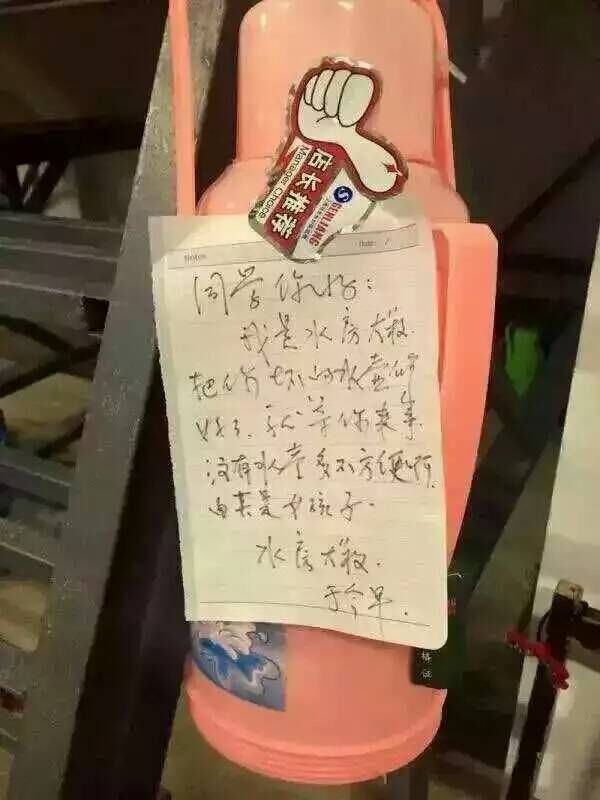 店长推荐
Manager Choice
QINLIANG
Notes
Date: /
同学你好:
我是水房大叔.
把你坏的水壶修
好了.就等你来拿.
没有水壶多不方便啊.
由其是女孩子.
水房大叔.
于今早.
格证